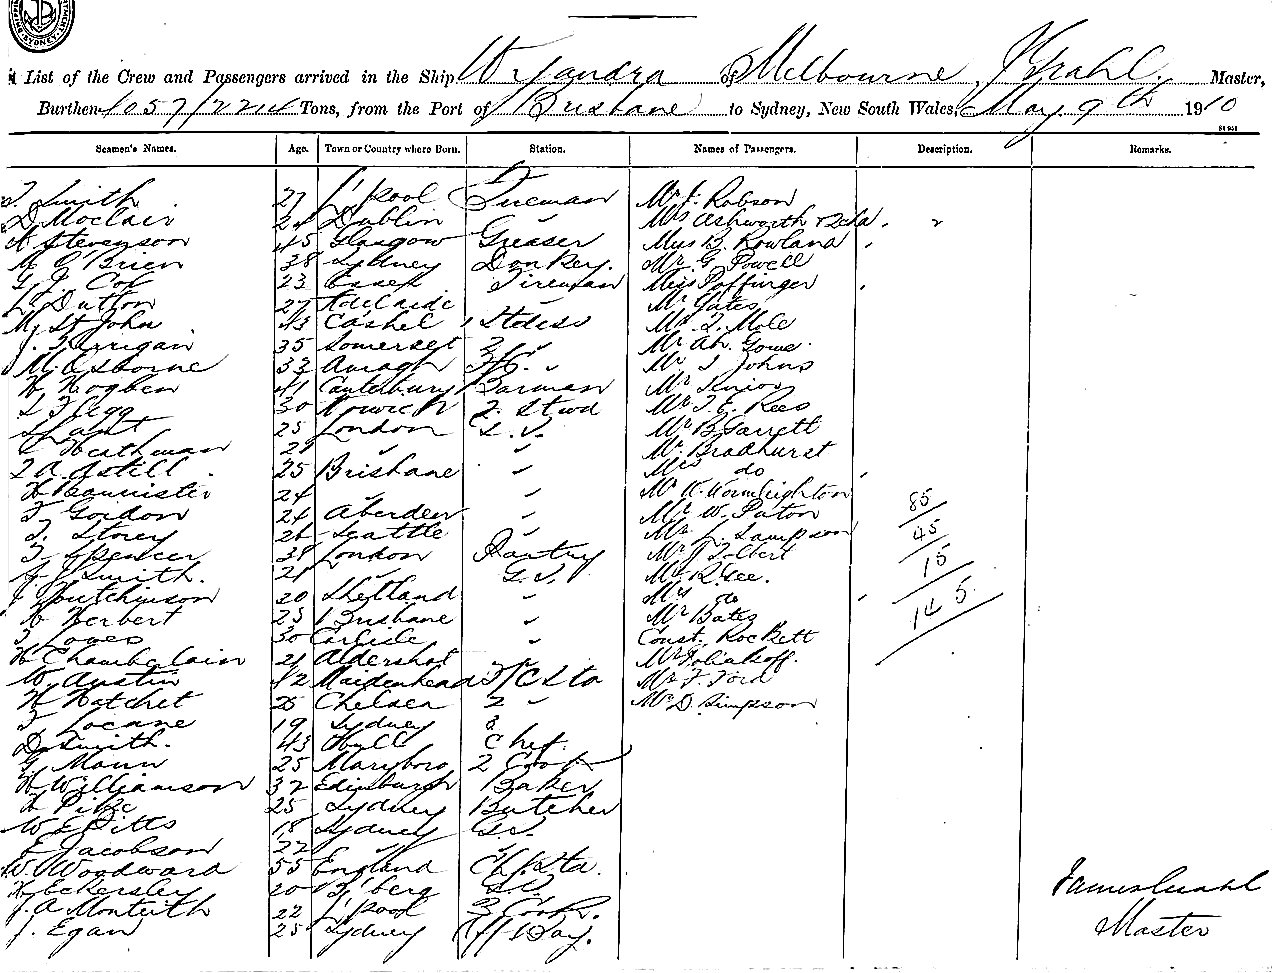 A List of the Crew and Passengers arrived in the Ship Wyandra of Melbourne, Master,
Burthen 1057/2211 Tons, from the Port of Brisbane to Sydney, New South Wales, May 9th 1910
Seamen's Names. Age. Town or Country where Born. Station. Names of Passengers. Description. Remarks.
T. Smith 27 L'pool Fireman Mr J. Robson
D. Moclair 24 Dublin " Mrs Ashworth
A Stevenson 45 Glasgow Greaser Miss B. Rowland
O'Brien 38 Sydney Donkey. Mr G. Powell
G. J. Cox 23 Essex Fireman Miss Poffinger
Dutton 27 Adelaide Mr Yates
M. St John 43 Cashel Stdess Mr T. Mole
J. Kerrigan 35 Somerset 2 " Mr Ah. Gowe.
M. Osborne 33 Armagh " Mr J Johns
H Hogben 41 Canterbury Barman Mr
L Flegg 30 Norwich 2. Stwd Mr T. E. Rees
25 London S.S. Mr B Garrett
Heathman 21 " " Mr Bradhurst
T. A. Astill 25 Brisbane " Mrs do
H Bannister 24 " " Mr W. Wormleighton 85
T. Gordon 24 Aberdeen " Mr W. Paton
T. Storey 26 Seattle " Mr Sampson 45
T. Spencer 38 London Pantry Mr
J. Smith. 21 " G.S. Mr R. Lee. 15
J Hutchinson 20 Shetland " Mrs do
Herbert 23 Brisbane " Mr Bates 145.
T Lowes 30 Carlisle " Const. Rockett
H Chamberlain 21 Aldershot Mr
W. Austin 42 Maidenhead F/C Sto Mr F. Ford
H Hatchet 25 Chelsea 2 " Mr D. Simpson
T Locane 19 Sydney 3
D. Smith. 43 Hull Chef.
G. Mann 25 Maryboro 2 Cook
H Williamson 32 Edinburgh Baker
H Pike 25 Sydney Butcher
W E Pitts 18 Sydney G.S.
E Jacobson 22 "
W. Woodward 55 England
H. Eckersley 20
J. A. Monteith 22 L'pool 3 Cook.
J. Egan 25 Sydney Boy.
Master